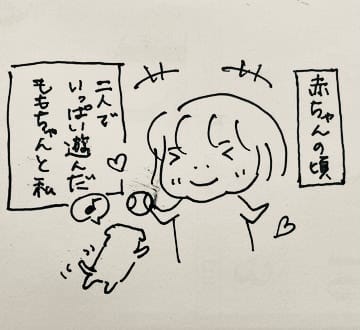 赤ちゃんの頃
二人で
いっぱい遊んだ
ももちゃんと私